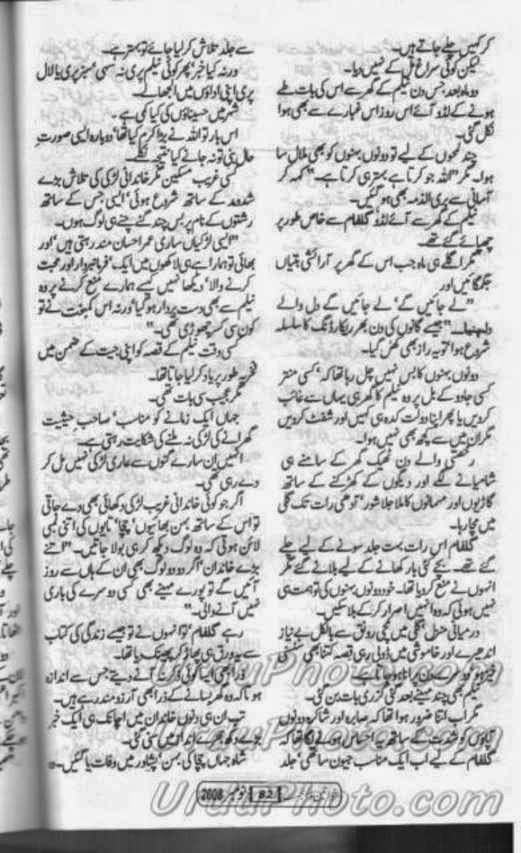 کر کہیں چلے جاتے ہیں۔
لیکن کوئی سراغ کے نہیں دیا۔
دو ماہ بعد جس دن نیلم کے گھر سے اس کی بات طے
ہونے کے لڈو آئے اس روز اس غبارے سے بھی ہوا
نکل گئی۔
چند لمحوں کے لیے تو دونوں بہنوں کو بھی ملال سا
ہوا۔ مگر "اللہ جو کرتا ہے بہتر ہی کرتا ہے۔" کہہ کر
آسانی سے بری الذمہ بھی ہو گئیں۔
نیلم کے گھر سے آئے لڈو گلفام سے خاص طور پر
چھپائے گئے تھے۔
مگر اگلے ہی ماہ جب اس کے گھر پر آرائشی بتیاں
جگمگائیں اور
"لے جائیں گے' لے جائیں گے دل والے
دلہنیا۔" جیسے گانوں کی دن بھر ریکارڈنگ کا سلسلہ
شروع ہوا تو یہ راز بھی کھل گیا۔
دونوں بہنوں کا بس نہیں چل رہا تھا کہ 'کسی منتر
کسی جادو کے بل پر وہ نیلم کا گھر ہی یہاں سے غائب
کر دیں یا پھر اپنا دولت کدہ ہی کہیں اور شفٹ کر دیں
مگر ان میں سے کچھ بھی نہیں ہوا۔
رخصتی والے دن ٹھیک گھر کے سامنے ہی
شامیانے لگے اور دیگوں کے کھڑکنے کے ساتھ
گاڑیوں اور مہمانوں کا ملا جلا شور' آدھی رات تک گلی
میں مچا رہا۔
گلفام اس رات بہت جلد سونے کے لیے چلے
گئے تھے۔ بچے کئی بار کھانے کے لیے بلانے گئے مگر
انہوں نے منع کر دیا تھا۔ خود دونوں بہنوں کی تو ہمت ہی
نہیں ہوئی کہ وہ انہیں اصرار کر کے بلا سکیں۔
درمیانی منزل گلی میں مچی رونق سے بالکل بے نیاز
اندھیرے اور خاموشی میں ڈوبی رہی قصہ کتنا بھی سنسنی
خیز ہو دوسرے دن پرانا ہو جاتا ہے۔
نیلم بھی چند مہینے بعد گئی گزری بات بن گئی۔
مگر اب اتنا ضرور ہوا تھا کہ صابرہ اور شاکرہ دونوں
آپاؤں کو شدت کے ساتھ یہ احساس ہونے لگا تھا کہ
گلفام کے لیے اب ایک مناسب جیون ساتھی 'جلد
سے جلد تلاش کر لیا جائے تو بہتر ہے۔
ورنہ کیا خبر' پھر کوئی نیلم پری نہ سہی 'سبز پری یا لال
پری اپنی اداؤں میں الجھا لے۔
شہر میں حسیناؤں کی کیا کمی ہے۔
اس بار تو اللہ نے بڑا کرم کیا تھا' دوبارہ ایسی صورت
حال بنی تو نہ جانے کیا نتیجہ نکلے۔
کسی غریب مسکین مگر خاندانی لڑکی کی تلاش بڑے
شدومد کے ساتھ شروع ہوئی' ایسی جس کے ساتھ
رشتوں کے نام پر بس چند گنے چنے ہی لوگ ہوں۔
"ایسی لڑکیاں ساری عمر احسان مند رہتی ہیں' اور
بھائی تو ہمارا ہے ہی لاکھوں میں ایک' فرمانبردار اور محبت
کرنے والا' دیکھا نہیں کیسے ہمارے منع کرنے پر وہ
نیلم سے بھی دست بردار ہو گیا' ورنہ اس کمبخت نے تو
کون سی کسر چھوڑی تھی۔"
کسی وقت نیلم کے قصہ کو اپنی جیت کے ضمن میں
فخریہ طور پر یاد کر لیا جاتا تھا۔
مگر عجیب سی بات تھی۔
جہاں ایک زمانے کو مناسب' صاحب حیثیت
گھرانے کی لڑکی نہ ملنے کی شکایت رہتی ہے۔
انہیں ان سارے گنوں سے عاری لڑکی نہیں مل کر
دے رہی تھی۔
اگر جو کوئی خاندانی غریب لڑکی دکھائی بھی دے جاتی
تو اس کے ساتھ بہن بھائیوں' چچا' تایوں کی اتنی لمبی
لائن ہوتی کہ وہ لوگ دیکھ کر ہی ہولا جاتیں۔ "اتنے
بڑے خاندان' اگر دو دو لوگ بھی ان کے ہاں سے روز
آئیں گے تو پورے مہینے بھی کسی دوسرے کی باری
نہیں آنے والی۔"
رہے گلفام' تو انہوں نے تو جیسے زندگی کی کتاب
سے یہ ورق ہی پھاڑ کر پھینک دیا تھا۔
ذرا بھی ایسا کوئی ذکر نہ آنے دیتے جس سے اندازہ
ہوتا کہ وہ گھر بسانے کے ذرا بھی آرزومند رہے ہیں۔
تب ان ہی دنوں خاندان میں اچانک ہی ایک خبر
بڑے دکھ بھرے انداز میں سنی گئی۔
شاہ جہاں چچا کی بہن' پشاور میں وفات پا گئیں۔
82 نومبر 2008
UrduPhoto.com
UrduPhoto.com
UrduPhoto.com